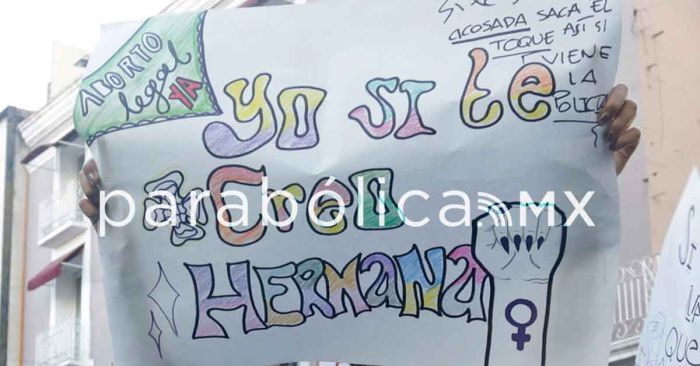 ABORTO
legal
YA
ACOSADA SACA EL
TOQUE ASÍ SI
VIENE
LA
POLICÍA
YO SI te
CreO
HERMANA
parabólica.MX
LA
QUE